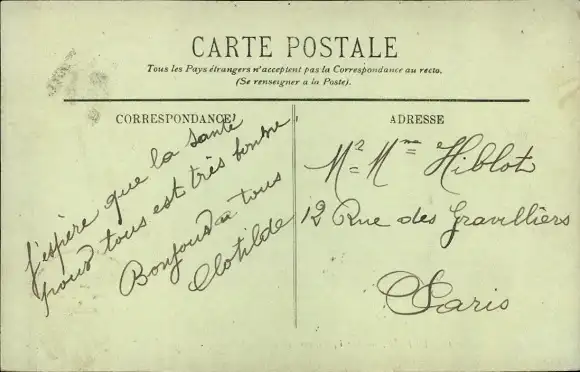 CARTE POSTALE
Tous les Pays étrangers n'acceptent pas la Correspondance au recto.
(Se renseigner a la Poste).
CORRESPONDANCE
J'espère que la santé
pour tous est très bonne
Bonjour a tous
Clotilde
ADRESSE
Mr Mme Hiblot
12 Rue des Gravilliers
Paris